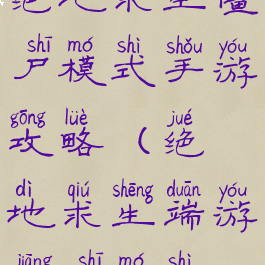 绝地求生僵
shī mó shì shǒu yóu
尸模式手游
gōng lüè jué
攻略（绝
dì qiú shēng duān yóu
地求生端游
jiāng shī mó shì